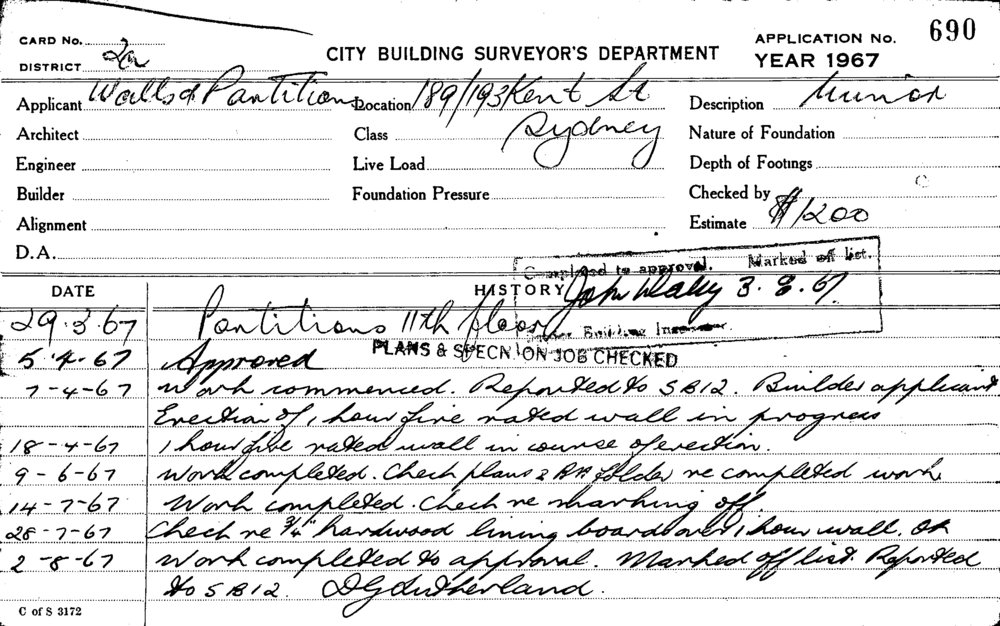 CARD No.
DISTRICT 2a
CITY BUILDING SURVEYOR'S DEPARTMENT
APPLICATION No. 690
YEAR 1967
Applicant Walls & Partitions
Location 189/193 Kent St
Sydney
Description Minor
Architect
Class
Nature of Foundation
Engineer
Live Load
Depth of Footings
Builder
Foundation Pressure
Checked by
Alignment
Estimate $1200
D.A.
Completed to approval. Marked off list.
John Daley 3.8.67
Building Inspector.
DATE
HISTORY
29.3.67 Partitions 11th floor
PLANS & SPECN ON JOB CHECKED
5-4-67 Approved
7-4-67 Work commenced. Reported to SB12. Builder applicant
Erection of 1 hour fire rated wall in progress
18-4-67 1 hour fire rated wall in course of erection.
9-6-67 Work completed. Check plans & folder re completed work
14-7-67 Work completed. Check re marking off
28-7-67 Check re 3/4" hardwood lining boards over 1 hour wall. OK
2-8-67 Work completed to approval. Marked off list. Reported
to SB12. DG Sutherland.
C of S 3172